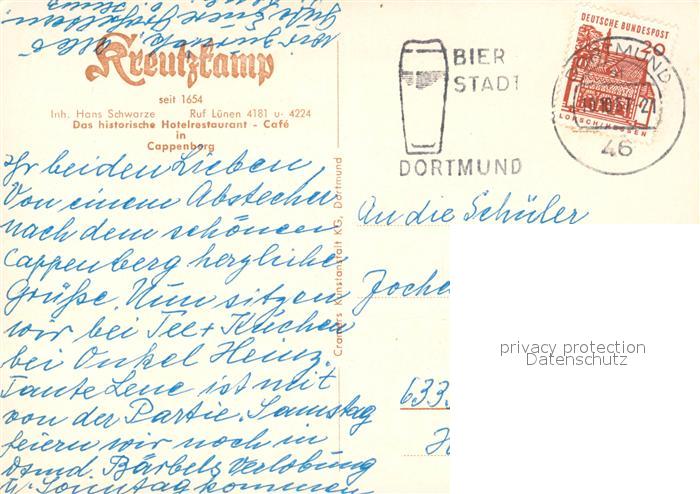 Kreutzkamp
seit 1654
Inh. Hans Schwarze Ruf Lünen 4181 u. 4224
Das historische Hotelrestaurant - Café
in
Cappenberg
Ihr beiden Lieben,
Von einem Abstecher
nach dem schönen
Cappenberg herzliche
Grüße. Nun sitzen
wir bei Tee + Kuchen
bei Onkel Heinz.
Tante Lene ist mit
von der Partie. Samstag
feiern wir noch in
Dtmd. Bärbels Verlobung
u. Sonntag kommen
wir zurück. Alle
Cramers Kunstanstalt KG, Dortmund
BIER
STADT
DORTMUND
DEUTSCHE BUNDESPOST
20
LORSCH/HESSEN
DORTMUND
46
An die Schüler
Joche
633
privacy protection
Datenschutz